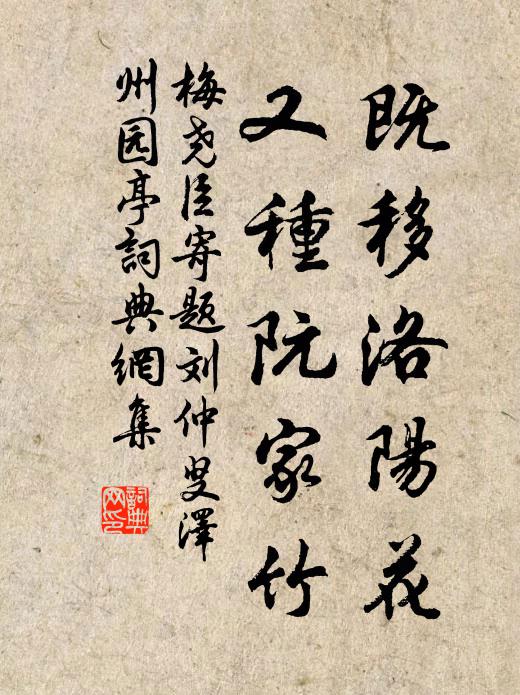 既移洛陽花
又種阮家竹
梅尧臣寄题刘仲叟澤
州园亭詞典網集
詞典
网印